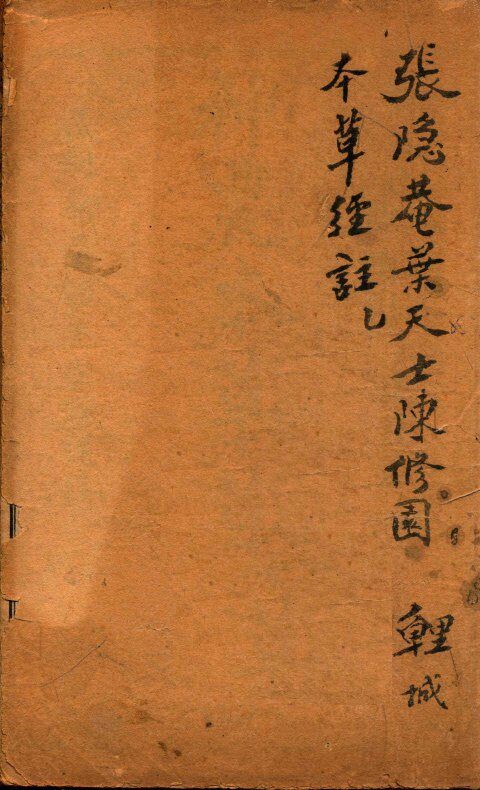 張隐菴葉天士陳修園
城
本草經註乙